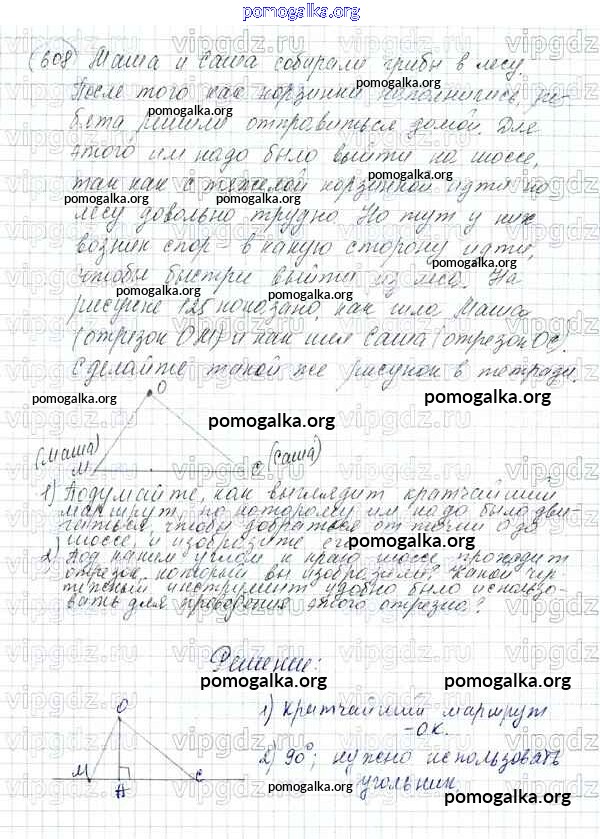 pomogalka.org
608 Маша и Саша собирали грибы в лесу.
После того как корзинки наполнились, ре-
бята решили отправиться домой. Для
этого им надо было выйти на шоссе,
так как с тяжелой корзинкой идти по
лесу довольно трудно. Но тут у них
возник спор - в какую сторону идти,
чтобы быстрее выйти из леса. На
рисунке 125 показано, как шла Маша
(отрезок ОМ) и как шел Саша (отрезок ОС).
Сделайте такой же рисунок в тетради.
О
(Маша) М С (Саша)
1) Подумайте, как выглядит кратчайший
маршрут, по которому им надо было дви-
гаться, чтобы добраться от точки О до
шоссе, и изобразите его.
2) Под каким углом к краю шоссе проходит
отрезок, который вы изобразили? Какой чер-
тежный инструмент удобно было использо-
вать для проведения этого отрезка?
Решение:
О
М Н С
1) Кратчайший маршрут
- ОК.
2) 90°; нужно использовать
угольник.